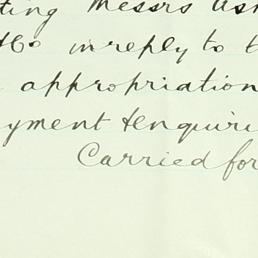 ting Messrs Ash
&Co in reply to t
appropriation
yment & enquiri
Carried for